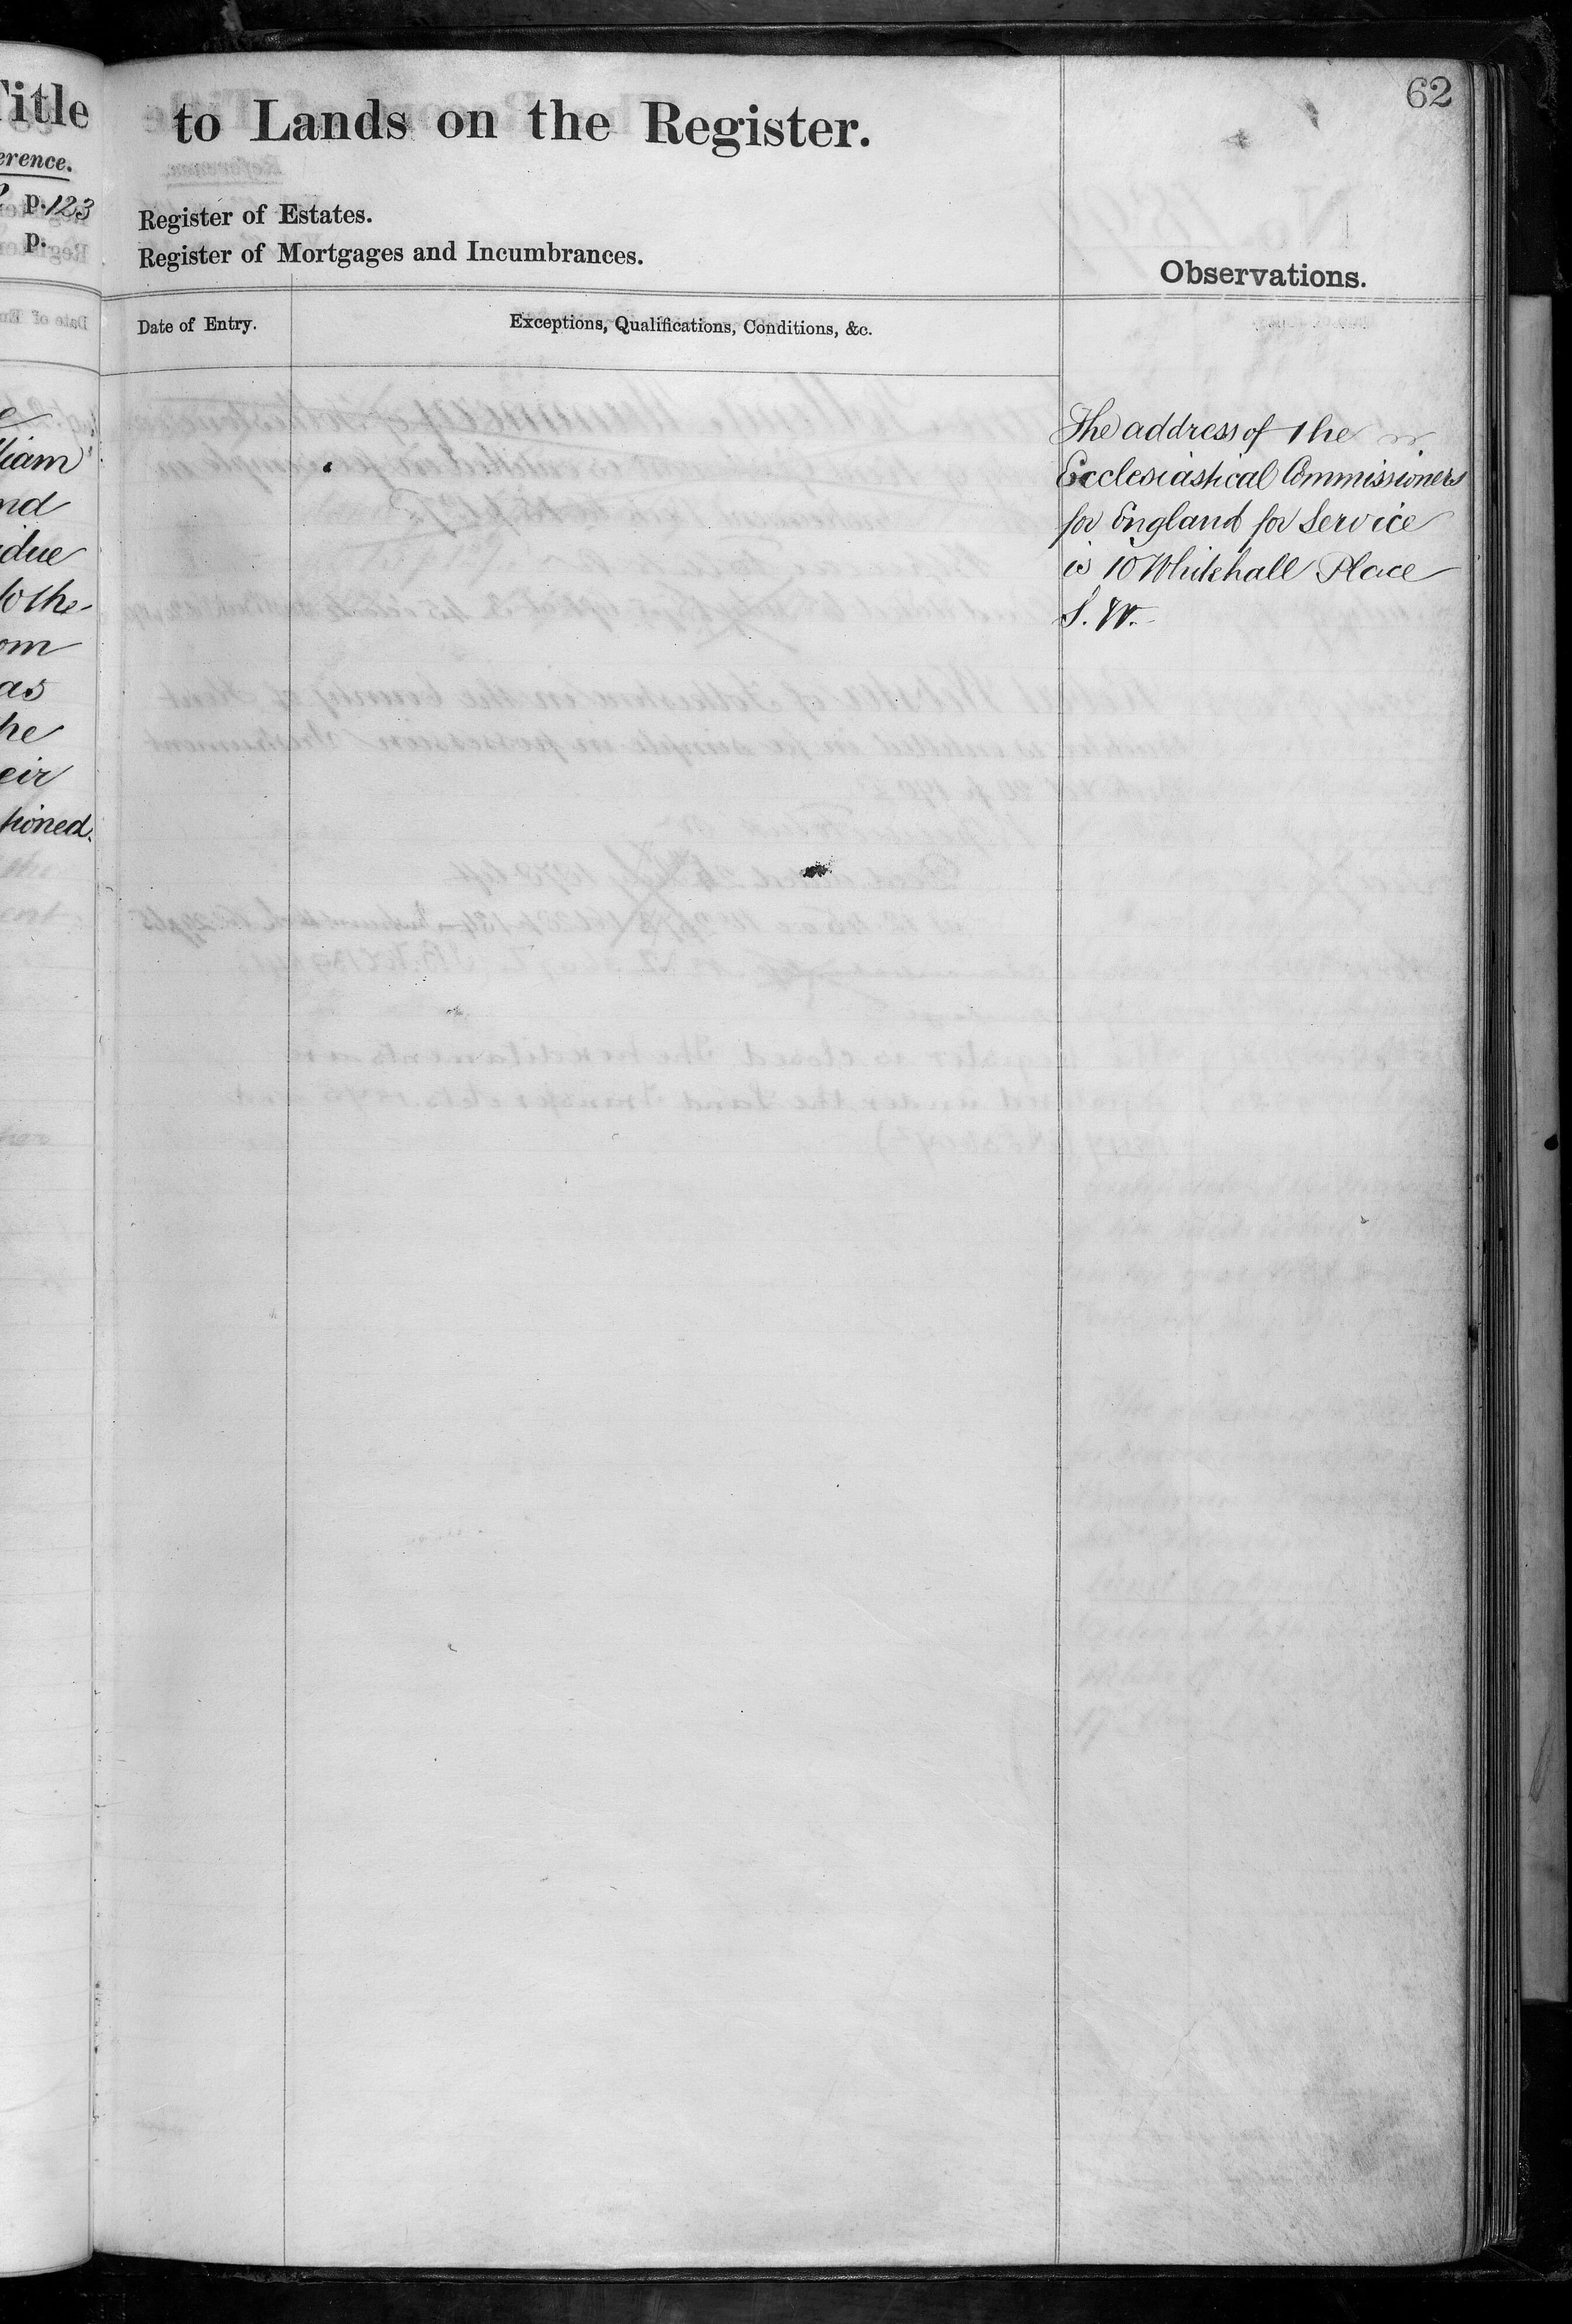 Title
erence.
p. 123
p.
liam
nd
idue
to the
om
as
he
eir
tioned.
62
to Lands on the Register.
Register of Estates.
Register of Mortgages and Incumbrances.
Observations.
Date of Entry.
Exceptions, Qualifications, Conditions, &c.
The address of the
Ecclesiastical Commissioners
for England for Service
is 10 Whitehall Place
S. W.